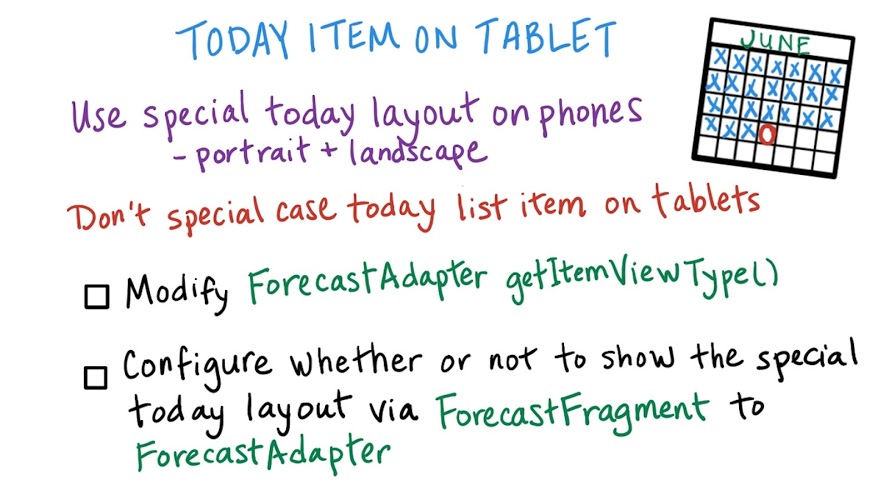 TODAY ITEM ON TABLET
JUNE
Use special today layout on phones
- portrait + landscape
Don't special case today list item on tablets
Modify ForecastAdapter getItemViewType()
Configure whether or not to show the special
today layout via ForecastFragment to
ForecastAdapter